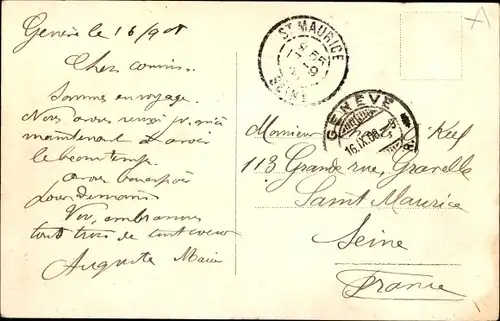 Genève le 16/9 08
Cher cousin.
Sommes en voyage.
Nous avons
maintenant
le beau temps.
avons bon espoir
pour demain
embrassons
tout trois de tout coeur
Auguste Marie
ST MAURICE
SEINE
GENÈVE
16.IX.08
Monsieur Kief
113 Grande rue, Gravelle
Saint Maurice
Seine
France